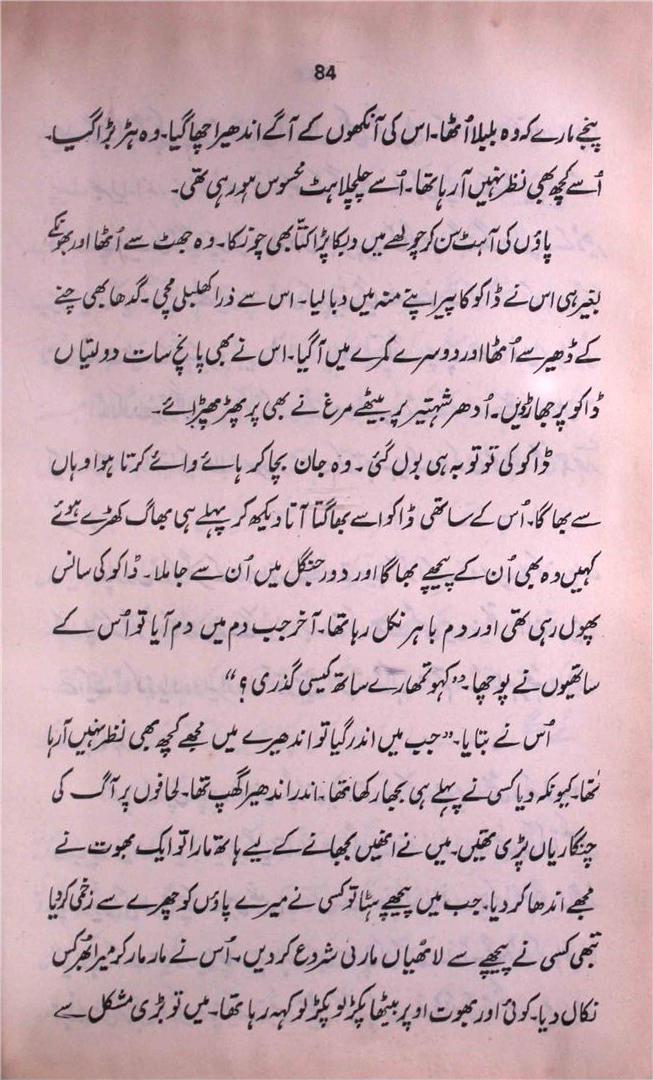 84
پنجے مارے کہ وہ بلبلا اُٹھا۔ اس کی آنکھوں کے آگے اندھیرا چھا گیا۔ وہ ہڑبڑا گیا۔
اُسے کچھ بھی نظر نہیں آ رہا تھا۔ اُسے چلچلاہٹ محسوس ہو رہی تھی۔
پاؤں کی آہٹ سن کر چولھے میں دبکا پڑا کتّا بھی چونکا۔ وہ جھٹ سے اُٹھا اور بھونکے
بغیر ہی اس نے ڈاکو کا پیر اپنے منہ میں دبا لیا۔ اس سے ذرا کھلبلی مچی۔ گدھا بھی چنے
کے ڈھیر سے اُٹھا اور دوسرے کمرے میں آ گیا۔ اس نے بھی پانچ سات دولتیاں
ڈاکو پر جھاڑ دیں۔ اُدھر شہتیر پر بیٹھے مرغ نے بھی پر پھڑپھڑائے۔
ڈاکو کی تو توبہ ہی بول گئی۔ وہ جان بچا کر ہائے وائے کرتا ہوا وہاں
سے بھاگا۔ اُس کے ساتھی ڈاکو اسے بھاگتا آتا دیکھ کر پہلے ہی بھاگ کھڑے ہوئے
کہیں وہ بھی اُن کے پیچھے بھاگا اور دور جنگل میں اُن سے جا ملا۔ ڈاکو کی سانس
پھول رہی تھی اور دم باہر نکل رہا تھا۔ آخر جب دم میں دم آیا تو اُس کے
ساتھیوں نے پوچھا۔ ”کہو تمھارے ساتھ کیسی گذری؟“
اُس نے بتایا۔ ”جب میں اندر گیا تو اندھیرے میں مجھے کچھ بھی نظر نہیں آ رہا
تھا۔ کیونکہ دیا کسی نے پہلے ہی بجھا رکھا تھا۔ اندر اندھیرا گھپ تھا۔ لحافوں پر آگ کی
چنگاریاں پڑی تھیں۔ میں نے انھیں بجھانے کے لیے ہاتھ مارا تو ایک بھوت نے
مجھے اندھا کر دیا۔ جب میں پیچھے ہٹا تو کسی نے میرے پاؤں کو چھرے سے زخمی کر دیا
تبھی کسی نے پیچھے سے لاٹھیاں مارنی شروع کر دیں۔ اُس نے مار مار کر میرا بھُرکس
نکال دیا۔ کوئی اور بھوت اوپر بیٹھا پکڑ لو پکڑ لو کہہ رہا تھا۔ میں تو بڑی مشکل سے